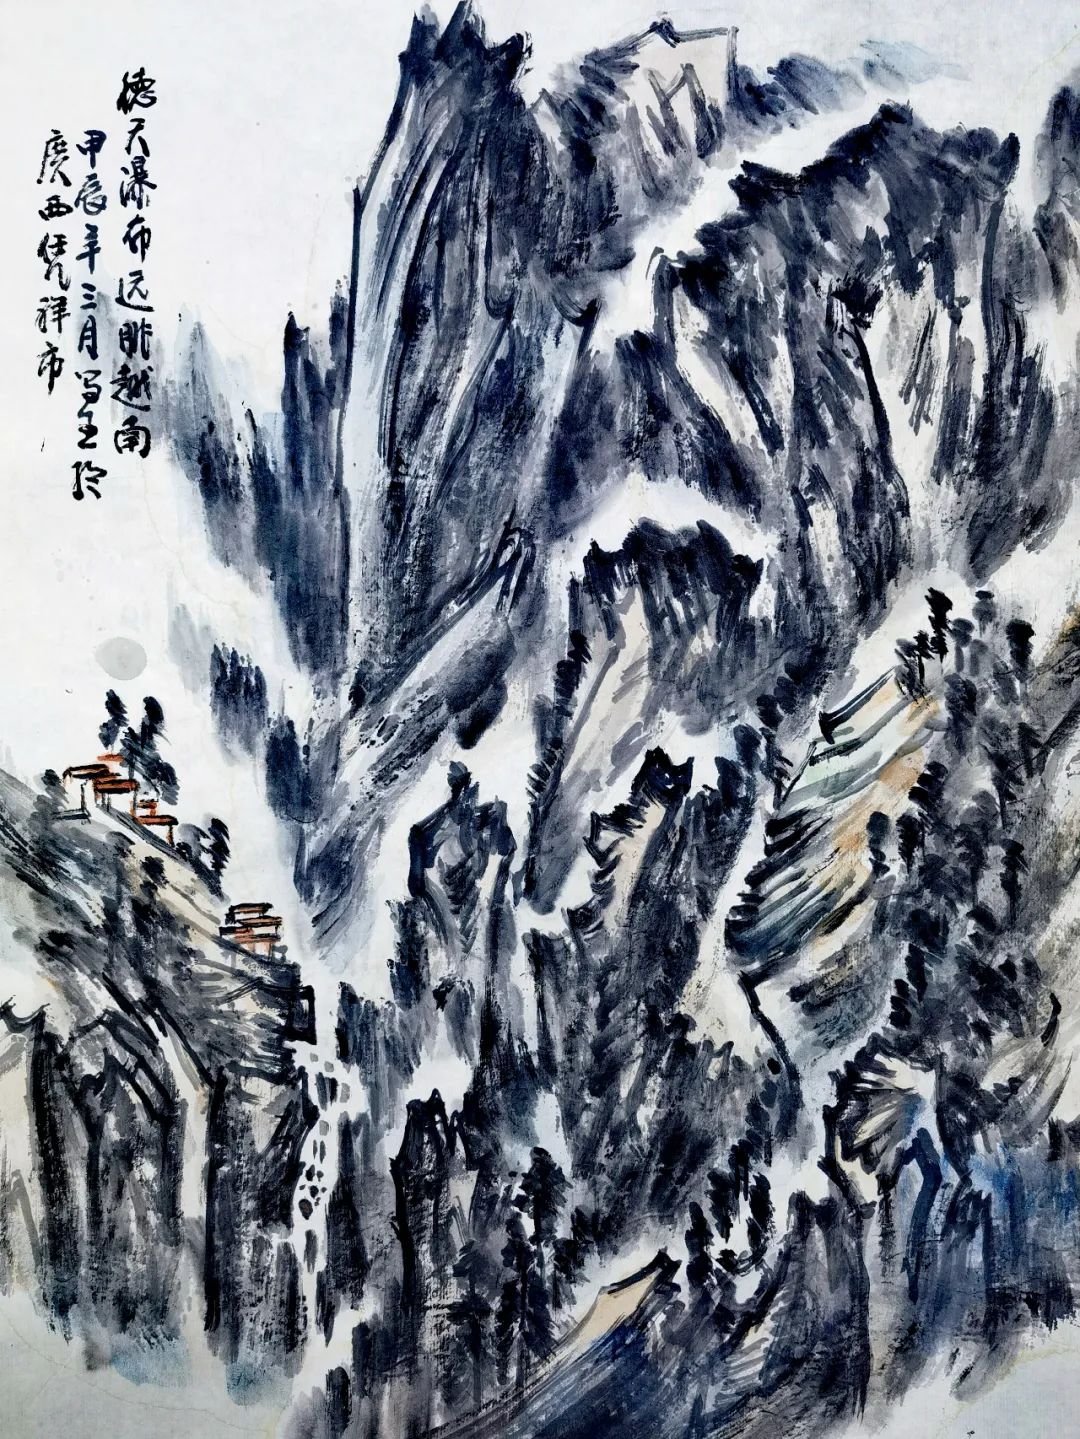 德天瀑布远眺越南
甲辰年三月写生于
广西凭祥市